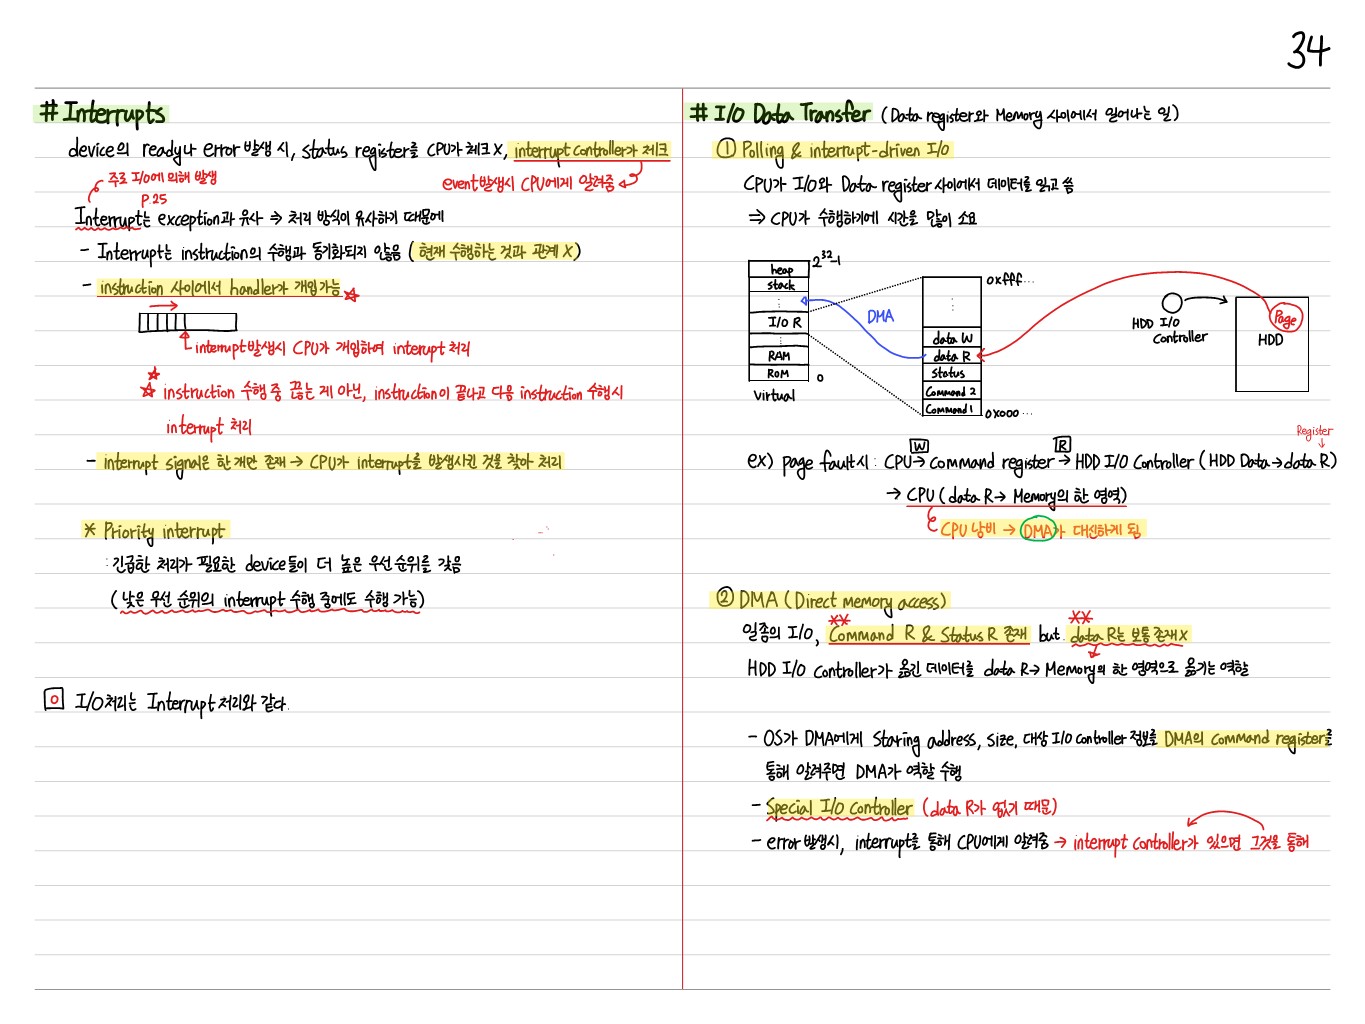 34
# Interrupts
device의 ready나 error 발생 시, status register를 CPU가 체크 X, interrupt controller가 체크
주로 I/O에 의해 발생
event발생시 CPU에게 알려줌
P.25
Interrupt는 exception과 유사 ⇒ 처리 방식이 유사하기 때문에
- Interrupt는 instruction의 수행과 동기화되지 않음 ( 현재 수행하는 것과 관계 X )
- instruction 사이에서 handler가 개입가능 ☆
interrupt발생시 CPU가 개입하여 interrupt 처리
☆ instruction 수행 중 끊는 게 아닌, instruction이 끝나고 다음 instruction 수행시
interrupt 처리
- interrupt signal은 한 개만 존재 → CPU가 interrupt를 발생시킨 것을 찾아 처리
* Priority interrupt
: 긴급한 처리가 필요한 device들이 더 높은 우선 순위를 갖음
( 낮은 우선 순위의 interrupt 수행 중에도 수행 가능)
I/O처리는 Interrupt 처리와 같다.
# I/O Data Transfer (Data register와 Memory 사이에서 일어나는 일)
① Polling & interrupt-driven I/O
CPU가 I/O와 Data register 사이에서 데이터를 읽고 씀
⇒ CPU가 수행하기에 시간을 많이 소요
heap
2^32-1
stack
⋮
I/O R
RAM
ROM
0
virtual
DMA
0xfff...
⋮
data W
data R
status
Command 2
Command 1
0x000...
HDD I/O
Controller
Page
HDD
Register
W
R
ex) page fault시 : CPU → command register → HDD I/O Controller ( HDD Data → data R)
→ CPU ( data R → Memory의 한 영역)
CPU 낭비 → DMA가 대신하게 됨
② DMA ( Direct memory access)
일종의 I/O, Command R & Status R 존재 but. data R는 보통 존재 X
HDD I/O Controller가 옮긴 데이터를 data R → Memory의 한 영역으로 옮기는 역할
- OS가 DMA에게 Staring address, size, 대상 I/O controller 정보를 DMA의 Command register를
통해 알려주면 DMA가 역할 수행
- Special I/O Controller ( data R가 없기 때문)
- error 발생시, interrupt를 통해 CPU에게 알려줌 → interrupt controller가 있으면 그것을 통해